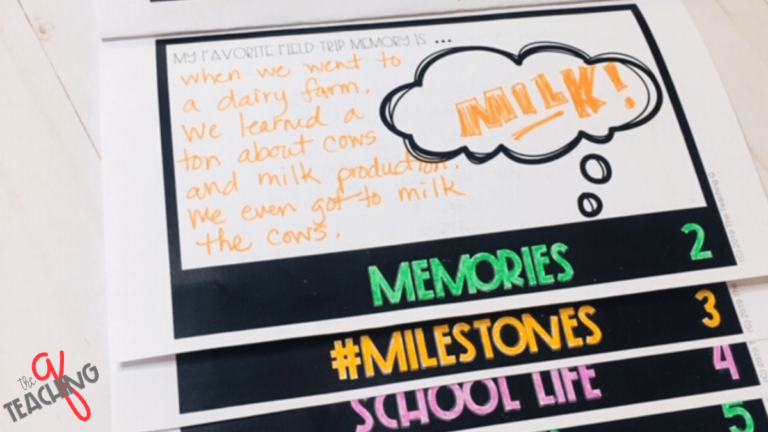 MY FAVORITE FIELD TRIP MEMORY IS ...
when we went to
a dairy farm.
We learned a
ton about cows
and milk production.
We even got to milk
the cows.
MILK!
MEMORIES 2
#MILESTONES 3
SCHOOL LIFE 4
5
the
TEACHING